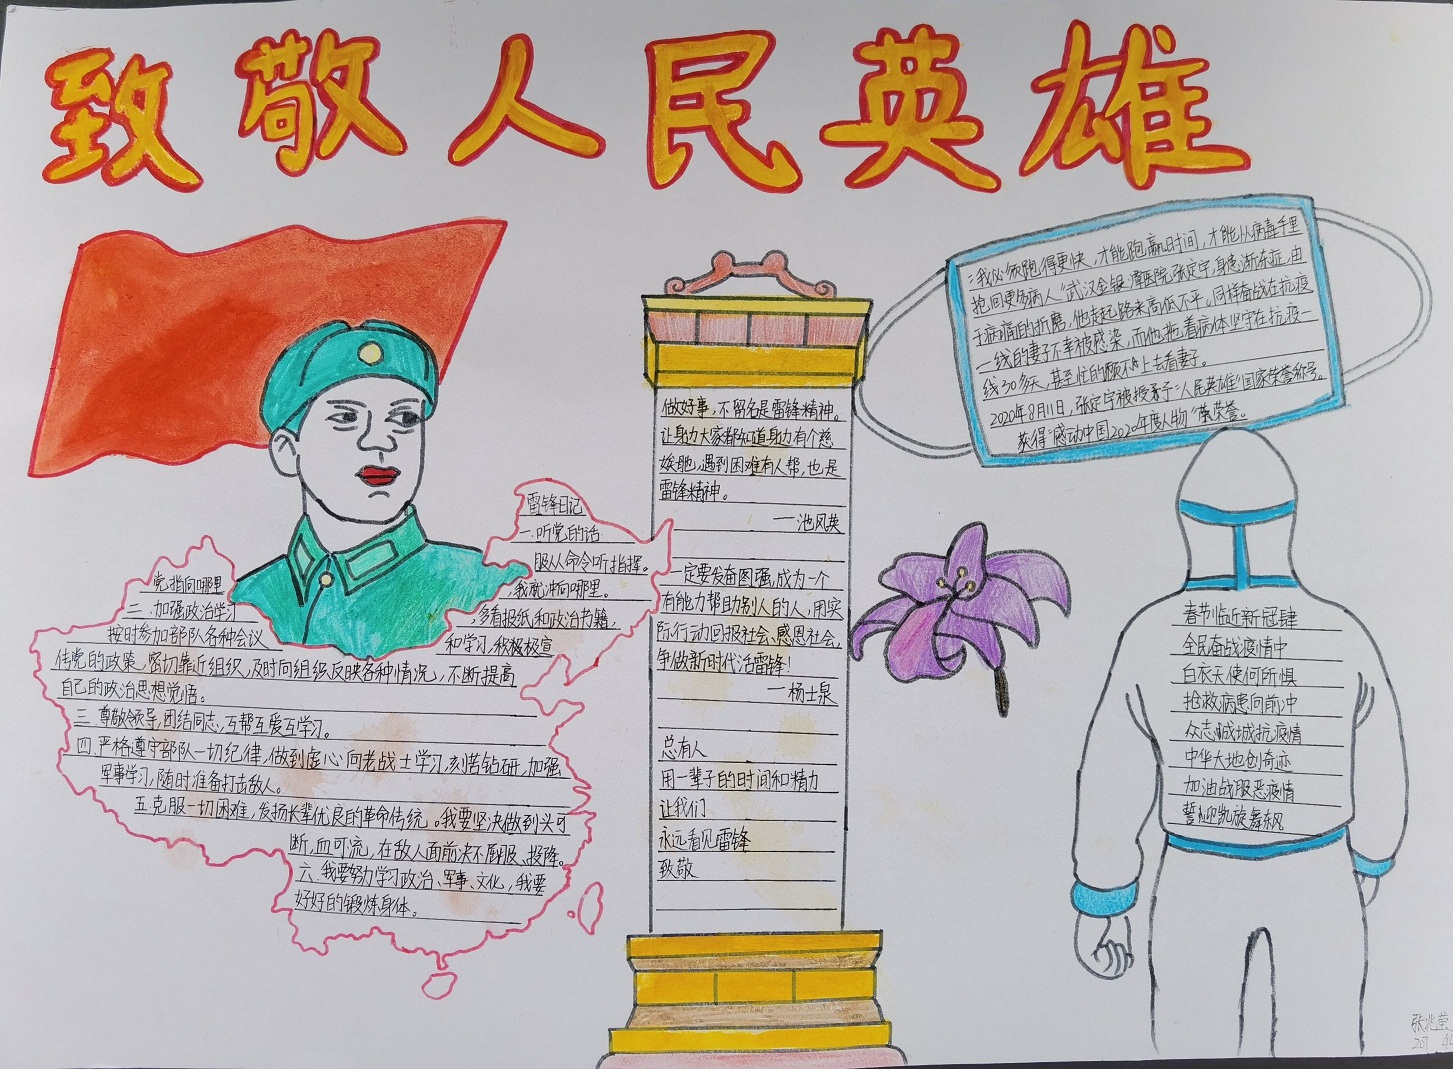 致敬人民英雄
雷锋日记
一.听党的话
服从命令听指挥。
党指向哪里
,我就冲向哪里。
二.加强政治学习
,多看报纸和政治书籍,
按时参加部队各种会议
和学习,积极宣
传党的政策,密切靠近组织,及时向组织反映各种情况,不断提高
自己的政治思想觉悟。
三.尊敬领导,团结同志,互帮互爱互学习。
四.严格遵守部队一切纪律,做到虚心向老战士学习,刻苦钻研,加强
军事学习,随时准备打击敌人。
五克服一切困难,发扬长辈优良的革命传统。我要坚决做到头可
断,血可流,在敌人面前决不屈服、投降。
六.我要努力学习政治、军事、文化,我要
好好的锻炼身体。
做好事,不留名是雷锋精神。
让身力大家都知道身力有个慈
娭毑,遇到困难有人帮,也是
雷锋精神。
一池凤英
一定要发奋图强,成为一个
有能力帮助别人的人,用实
际行动回报社会、感恩社会,
争做新时代活雷锋!
一杨士泉
总有人
用一辈子的时间和精力
让我们
永远看见雷锋
致敬
:我必须跑得更快,才能跑赢时间,才能从病毒手里
抢回更多病人"武汉金银潭医院张定宇,身患渐冻症,由
于病痛的折磨,他走起路来高低不平。同样奋战在抗疫
一线的妻子不幸被感染,而他拖着病体坚守在抗疫一
线30多天,甚至忙的顾不上去看妻子。
2020年8月11日,张定宇被授予"人民英雄"国家荣誉称号。
获得"感动中国2020年度人物"荣誉。
春节临近新冠肆
全民奋战疫情中
白衣天使何所惧
抢救病患向前冲
众志成城抗疫情
中华大地创奇迹
加油战服恶疫情
誓迎凯旋舞东风
张兆莹